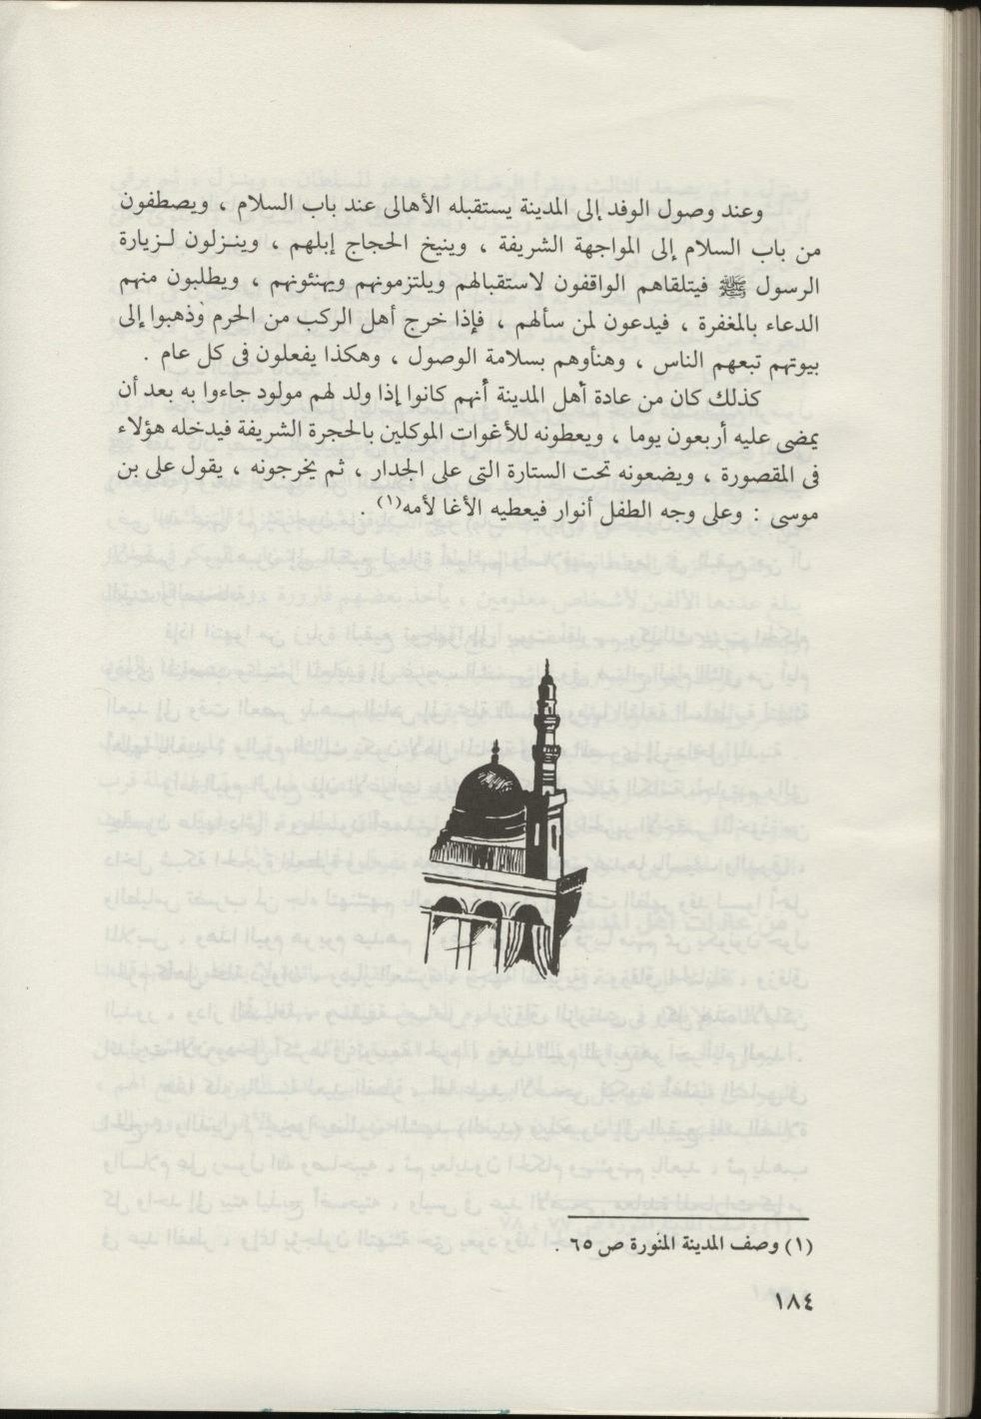 وعند وصول الوفد إلى المدينة يستقبله الأهالى عند باب السلام ، ويصطفون
من باب السلام إلى المواجهة الشريفة ، وينيخ الحجاج إبلهم ، وينـزلون لـزيارة
الرسول ﷺ فيتلقاهم الواقفون لاستقبالهم ويلتزمونهم ويهنئونهم ، ويطلبون منهم
الدعاء بالمغفرة ، فيدعون لمن سألهم ، فإذا خرج أهل الركب من الحرم وذهبوا إلى
بيوتهم تبعهم الناس ، وهنأوهم بسلامة الوصول ، وهكذا يفعلون فى كل عام .
كذلك كان من عادة أهل المدينة أنهم كانوا إذا ولد لهم مولود جاءوا به بعد أن
يمضى عليه أربعون يوما ، ويعطونه للأغوات الموكلين بالحجرة الشريفة فيدخله هؤلاء
فى المقصورة ، ويضعونه تحت الستارة التى على الجدار ، ثم يخرجونه ، يقول على بن
موسى : وعلى وجه الطفل أنوار فيعطيه الأغا لأمه(١) .
(١) وصف المدينة المنورة ص ٦٥ .
١٨٤